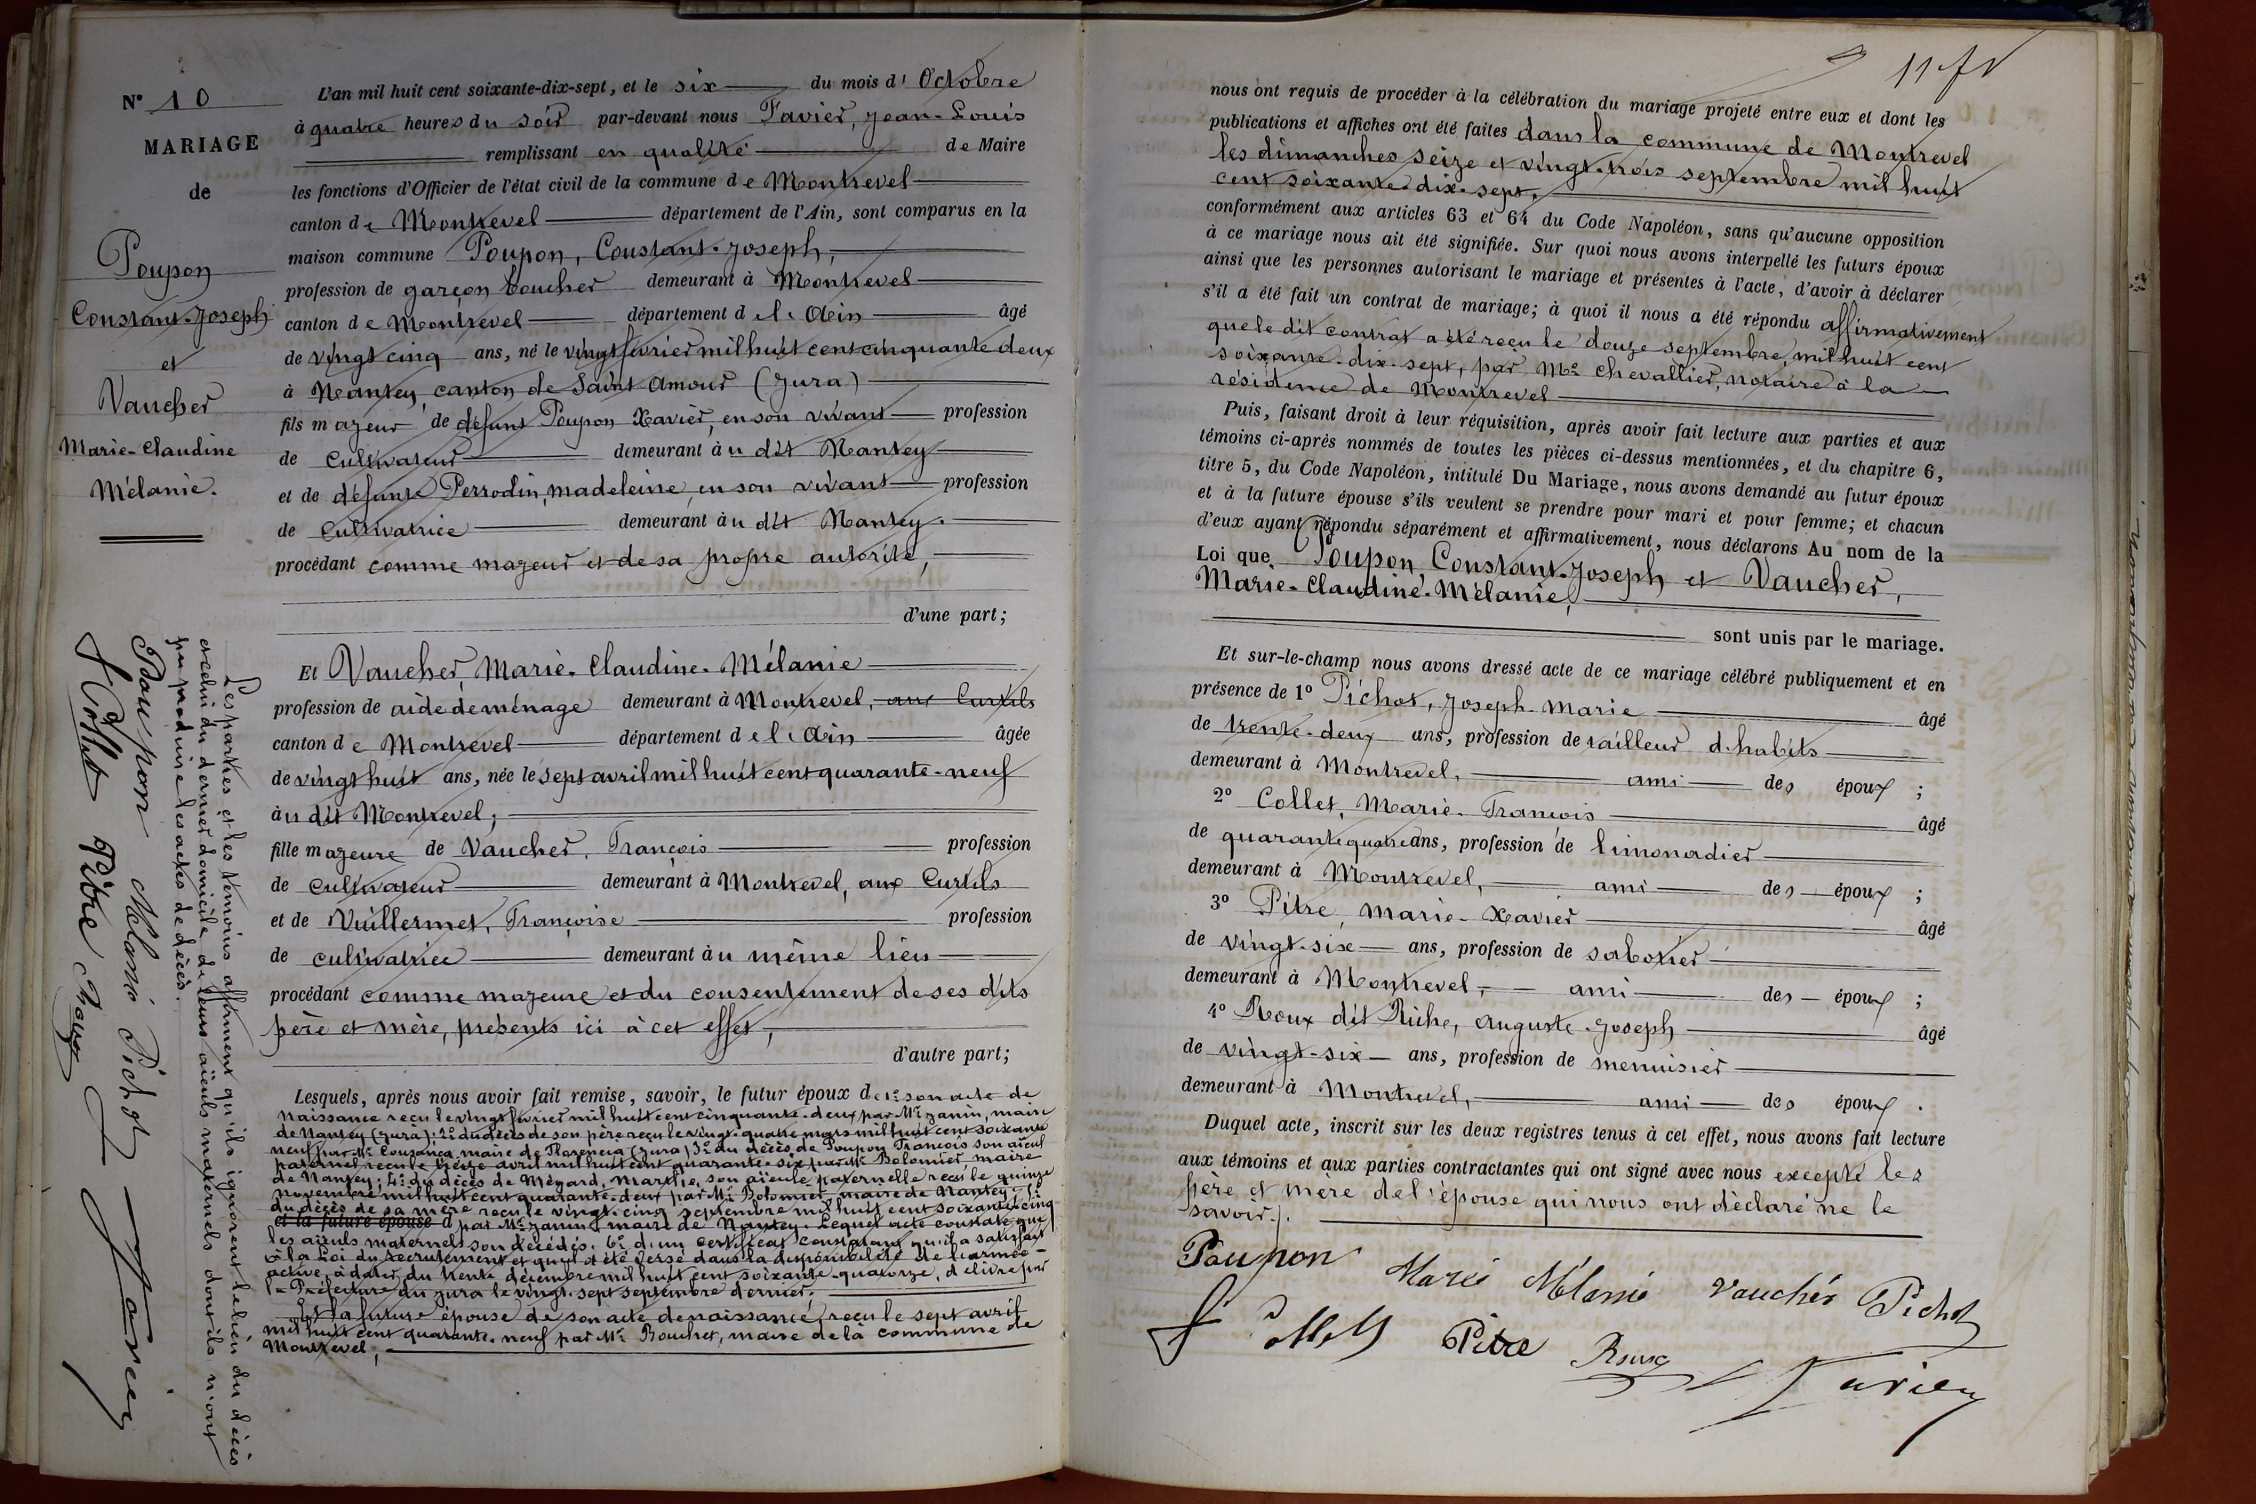 N° 10
MARIAGE
de
Poupon
Constant-Joseph
et
Vaucher
Marie-Claudine
Mélanie.
L'an mil huit cent soixante-dix-sept, et le six du mois d' Octobre
à quatre heures du soir par-devant nous Favier, Jean-Louis
remplissant en qualité de Maire
les fonctions d'Officier de l'état civil de la commune de Montrevel
canton de Montrevel département de l'Ain, sont comparus en la
maison commune Poupon, Constant-Joseph,
profession de garçon boucher demeurant à Montrevel
canton de Montrevel département de l'Ain âgé
de vingt cinq ans, né le vingt février mil huit cent cinquante deux
à Nantey, canton de Saint Amour (Jura)
fils majeur de defunt Poupon Xavier, en son vivant profession
de cultivateur demeurant àu dit Nantey
et de défunte Perrodin, madeleine, en son vivant profession
de cultivatrice demeurant àu dit Nantey.
procédant comme majeur et de sa propre autorité,
d'une part;
Et Vaucher, Marie-Claudine-Mélanie
profession de aide de ménage demeurant à Montrevel, aux Curtils
canton de Montrevel département de l'Ain âgée
de vingt huit ans, née le sept avril mil huit cent quarante-neuf
àu dit Montrevel,
fille majeure de Vaucher, François profession
de cultivateur demeurant à Montrevel, aux Curtils
et de Vuillermet, Françoise profession
de cultivatrice demeurant àu même lieu
procédant comme majeure et du consentement de ses dits
père et mère, présents ici à cet effet,
d'autre part;
Lesquels, après nous avoir fait remise, savoir, le futur époux de 1° son acte de
naissance reçu le vingt février mil huit cent cinquante-deux par Mr Janin, maire
de Nantey (Jura); 2° du décès de son père reçu le vingt-quatre mars mil huit cent soixante
neuf par Mr Cousança, maire de Florencia (Jura) 3° du décès de Poupon François son aïeul
paternel reçu le treize avril mil huit cent quarante-six par Mr Bolomier, maire
de Nantey; 4° du décès de Mégard, Marthe, son aïeule paternelle reçu le quinze
novembre mil huit cent quarante-deux par Mr Bolomier, maire de Nantey; 5°
du décès de sa mère reçu le vingt-cinq septembre mil huit cent soixante-cinq
et la future épouse d par Mr Janin, maire de Nantey. Lequel acte constate que
les aïeuls maternels son décédés. 6° d'un certificat constatant qu'il a satisfait
à la Loi du recrutement et qu'il a été versé dans la disponibilité de l'armée
active, à dater du trente décembre mil huit cent soixante-quatorze, délivré par
la Préfecture du Jura le vingt-sept septembre dernier;
Et la future épouse de son acte de naissance, reçu le sept avril
mil huit cent quarante-neuf par Mr Bouchet, maire de la commune de
Montrevel,
Les parties et les témoins affirment qu'ils ignorent le lieu du décès
et celui du dernier domicile de leurs aïeuls maternels dont ils n'ont
pu produire les actes de décès.
Poupon Mélanie Pichot
F Collet Pitre Roux Favier
11 fv
nous ont requis de procéder à la célébration du mariage projeté entre eux et dont les
publications et affiches ont été faites dans la commune de Montrevel
les dimanches seize et vingt-trois septembre mil huit
cent soixante-dix-sept.
conformément aux articles 63 et 64 du Code Napoléon, sans qu'aucune opposition
à ce mariage nous ait été signifiée. Sur quoi nous avons interpellé les futurs époux
ainsi que les personnes autorisant le mariage et présentes à l'acte, d'avoir à déclarer
s'il a été fait un contrat de mariage; à quoi il nous a été répondu affirmativement
que le dit contrat a été reçu le douze septembre, mil huit cent
soixante-dix-sept, par Me Chevallier, notaire à la
résidence de Montrevel
Puis, faisant droit à leur réquisition, après avoir fait lecture aux parties et aux
témoins ci-après nommés de toutes les pièces ci-dessus mentionnées, et du chapitre 6,
titre 5, du Code Napoléon, intitulé Du Mariage, nous avons demandé au futur époux
et à la future épouse s'ils veulent se prendre pour mari et pour femme; et chacun
d'eux ayant répondu séparément et affirmativement, nous déclarons Au nom de la
Loi que Poupon Constant-Joseph et Vaucher,
Marie-Claudine-Mélanie,
sont unis par le mariage.
Et sur-le-champ nous avons dressé acte de ce mariage célébré publiquement et en
présence de 1° Pichot, Joseph-Marie âgé
de trente-deux ans, profession de tailleur d'habits
demeurant à Montrevel, ami des époux ;
2° Collet, Marie-François âgé
de quarante quatre ans, profession de limonadier
demeurant à Montrevel, ami des époux ;
3° Pitre, Marie-Xavier âgé
de vingt-six ans, profession de sabotier
demeurant à Montrevel, ami des époux ;
4° Roux dit Riche, Auguste-Joseph âgé
de vingt-six ans, profession de menuisier
demeurant à Montrevel, ami des époux .
Duquel acte, inscrit sur les deux registres tenus à cet effet, nous avons fait lecture
aux témoins et aux parties contractantes qui ont signé avec nous excepté les
père et mère de l'épouse qui nous ont déclaré ne le
savoir.
Poupon Marie Mélanie Vaucher Pichot
F Collet Pitre Roux Favier